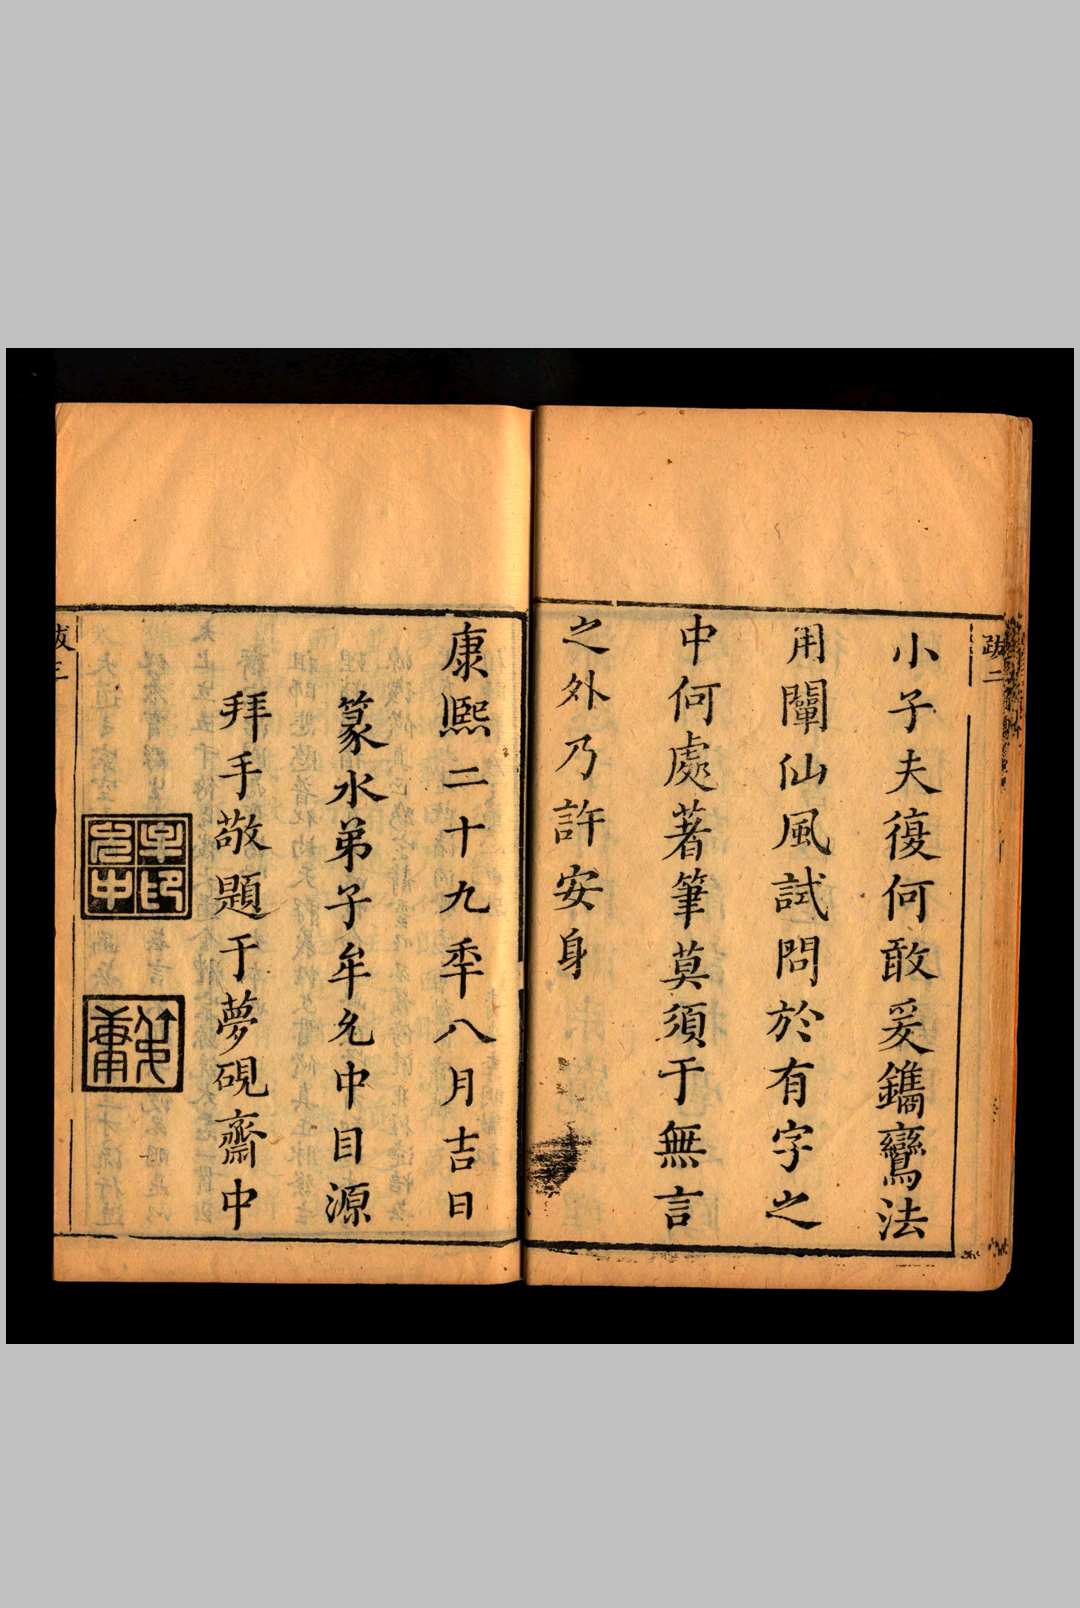 跋二
小子夫復何敢爰鐫鸞法
用闡仙風試問於有字之
中何處著筆莫須于無言
之外乃許安身
康熙二十九秊八月吉日
篆水弟子牟允中目源
拜手敬題于夢硯齋中
牟印允中
跋三